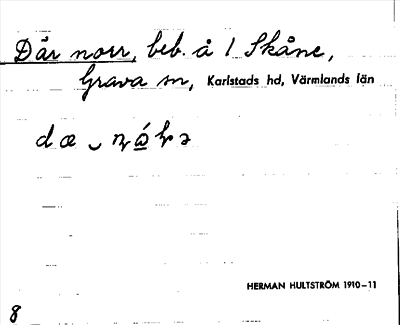 Där norr, beb. å 1 Skåne,
Grava sn, Karlstads hd, Värmlands län
HERMAN HULTSTRÖM 1910-11
8